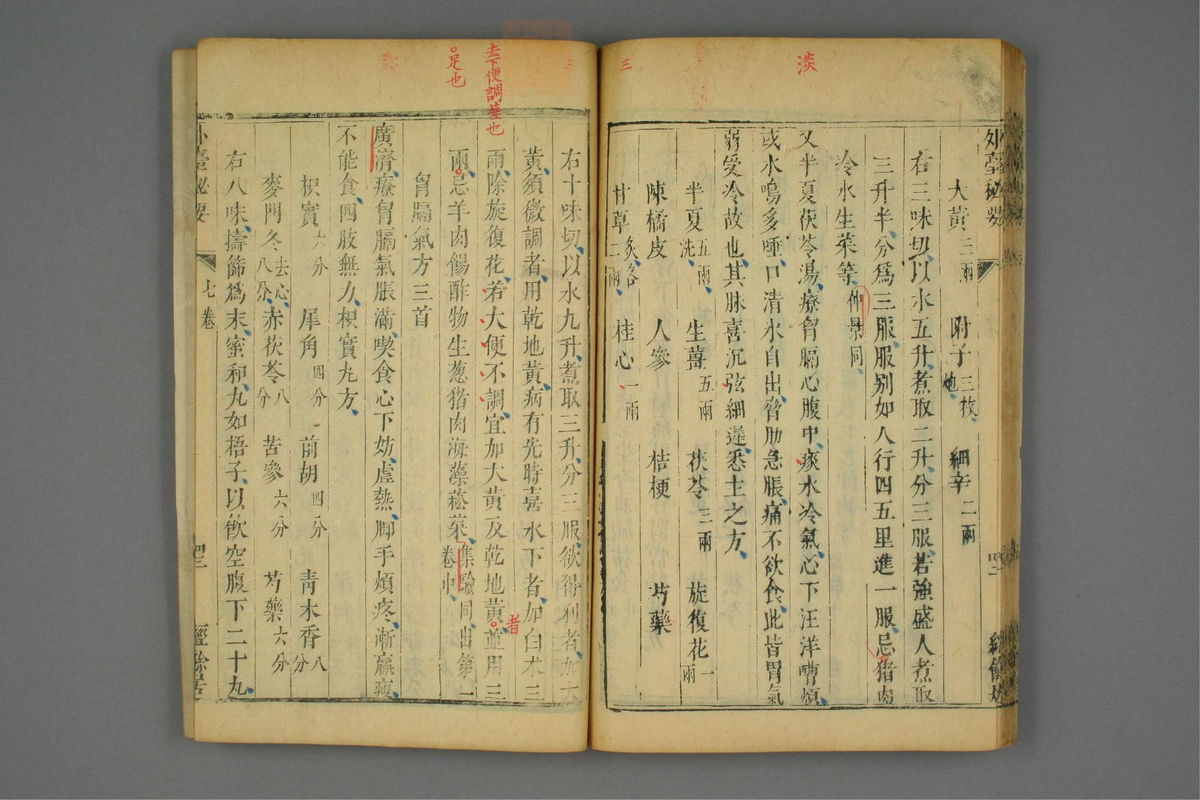 淡
三
外臺秘要
大黃三兩 附子三枚炮 細辛二兩
右三味切以水五升煮取二升分三服若強盛人煮取
三升半分爲三服服别如人行四五里進一服忌猪肉
冷水生菜等仲景同
又半夏茯苓湯療胷膈心腹中痰水冷氣心下汪洋嘈煩
或水鳴多唾口清水自出脅肋急脹痛不欲食此皆胃氣
弱受冷故也其脉喜沉弦細遲悉主之方
半夏五兩洗 生薑五兩 茯苓三兩 旋復花一兩
陳橘皮 人參 桔梗 芍藥
甘草炙各二兩 桂心一兩
去下便調塞也
足也
右十味切以水九升煮取三升分三服欲得利者加大
黃須微調者用乾地黃病有先時喜水下者加白术三
兩除旋復花若大便不調宜加大黃及乾地黃並用三
者
兩忌羊肉餳酢物生葱猪肉海藻菘菜集驗同出第二卷中
胷膈氣方三首
廣濟療胷膈氣脹滿喫食心下妨虛熱脚手煩疼漸羸瘦
不能食四肢無力枳實丸方
枳實六分 犀角四分 前胡四分 青木香八分
麥門冬去心八分 赤茯苓八分 苦參六分 芍藥六分
右八味擣篩爲末蜜和丸如梧子以飲空腹下二十九
外臺秘要
七卷
經餘居